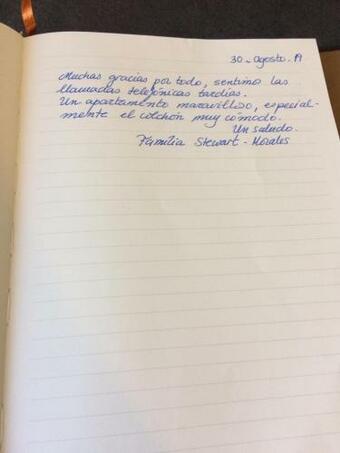 30 - agosto. 19
Muchas gracias por todo, sentimos las
llamadas telefónicas tardías.
Un apartamento maravilloso, especial-
mente el colchón muy cómodo.
Un saludo.
Familia Stewart - Morales